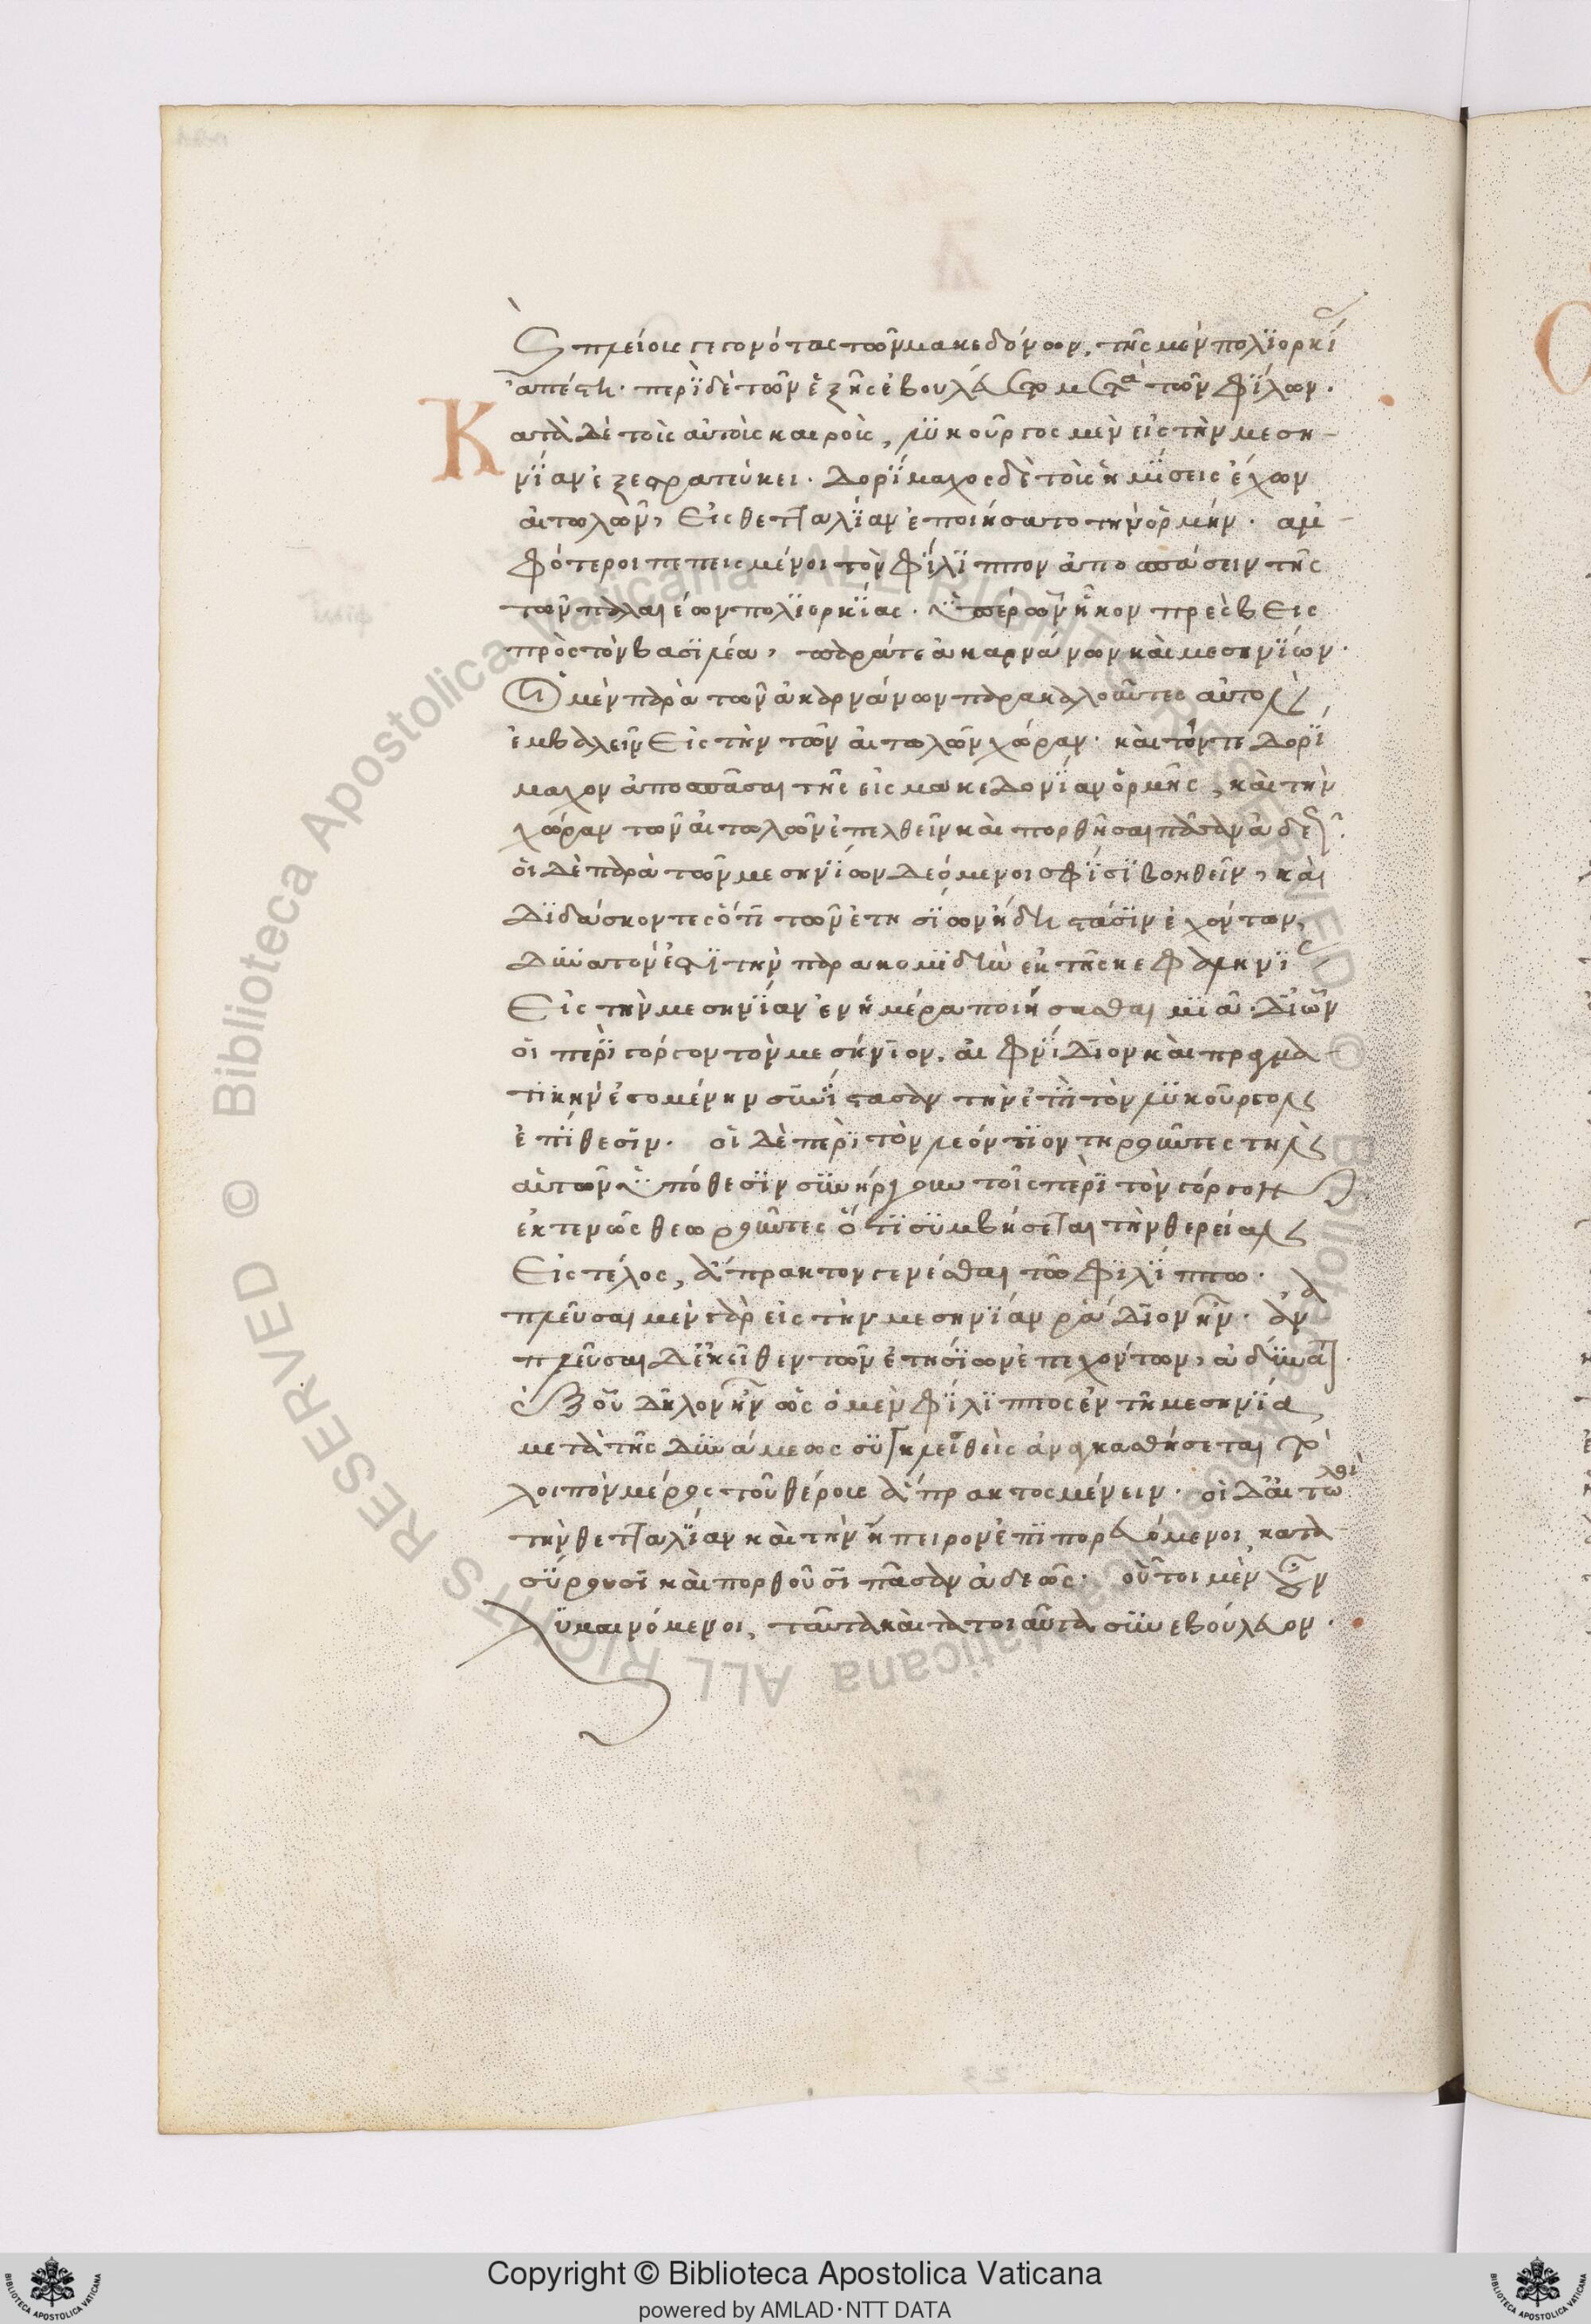 καὶ πλείους γεγονότας τῶν μακεδόνων, τῆς μὲν πολϊορκίας
ἀπέστη. περὶ δὲ τῶν ἑξῆς ἐβουλεύετο μετὰ τῶν φίλων.
Κατὰ δὲ τοὺς αὐτοὺς καιροὺς, λυκοῦργος μὲν εἰς τὴν μεση-
νίαν ἐξεστρατεύκει. Δορίμαχος δὲ τοὺς ἡμίσεις ἔχων
αἰτωλῶν, εἰς θετταλίαν ἐποιήσατο τὴν ὁρμήν. ἀμ-
φότεροι πεπεισμένοι τὸν φίλιππον ἀποσπάσειν τῆς
τῶν παλαιέων πολιορκίας. ὑπὲρ ὧν ἧκον πρέσβεις
πρὸς τὸν βασιλέα, παρά τε ἀκαρνάνων καὶ μεσηνίων.
οἱ μὲν παρὰ τῶν ἀκαρνάνων παρακαλοῦντες αὐτὸν
ἐμβαλεῖν εἰς τὴν τῶν αἰτωλῶν χώραν. καὶ τόν τε Δορί
μαχον ἀποσπᾶσαι τῆς εἰς μακεδονίαν ὁρμῆς, καὶ τὴν
χώραν τῶν αἰτωλῶν ἐπελθεῖν καὶ πορθῆσαι πᾶσαν ἀδεῶς.
οἱ δὲ παρὰ τῶν μεσηνίων δεόμενοι σφίσι βοηθεῖν, καὶ
διδάσκοντες ὅτι τῶν ἐτησίων ἤδη στάσιν ἐχόντων,
δυνατόν ἐστι τὴν παρακομιδὴν ἐκ τῆς κεφαλληνίας
εἰς τὴν μεσηνίαν ἐν ἡμέρα ποιήσασθαι μιᾶ. διῶν
οἱ περὶ γόργον τὸν μεσήνιον, αἰφνίδιον καὶ πραγμα-
τικὴν ἐσομένην συνίστασαν τὴν ἐπὶ τὸν λυκοῦργον
ἐπίθεσιν. οἱ δὲ περὶ τὸν λεόντιον τηροῦντες τὴν
αὑτῶν ὑπόθεσιν συνήργουν τοῖς περὶ τὸν γόργον
ἐκτενῶς θεωροῦντες ὅτι συμβήσεται τὴν θερείαν
εἰς τέλος, ἄπρακτον γενέσθαι τῶ φιλίππω.
πλεῦσαι μὲν γὰρ εἰς τὴν μεσηνίαν ῥάδιον ἦν. ἀνα
πλεῦσαι δ' ἐκεῖθεν τῶν ἐτησίων ἐπεχόντων, ἀδύνατον.
ἐξ οὗ δῆλον ἦν ὡς ὁ μὲν φίλιππος ἐν τῆ μεσηνία
μετὰ τῆς δυνάμεως συγκλεισθεὶς ἀναγκασθήσεται τὸ
λοιπὸν μέρος τοῦ θέρους ἄπρακτος μένειν. οἱ δ' αἰτωλοὶ
τὴν θετταλίαν καὶ τὴν ἤπειρον ἐπιπορευόμενοι, κατα
σύρουσι καὶ πορθοῦσι πᾶσαν ἀδεῶς. οὗτοι μὲν οὖν
λυμαινόμενοι, ταῦτα καὶ τὰ τοιαῦτα συνεβούλευον.
Copyright © Biblioteca Apostolica Vaticana
powered by AMLAD·NTT DATA